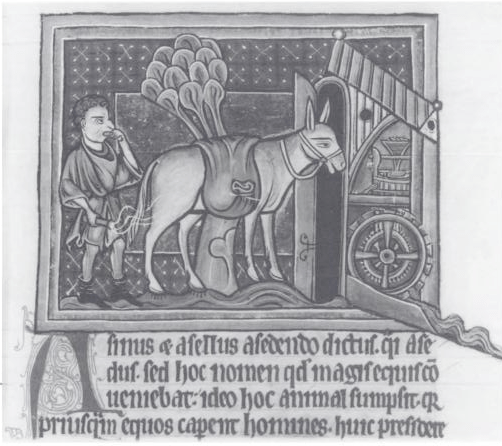 Asinus & asellus asedendo dictus. q̅i ase
dus. sed hoc nomen qd̕ magis equis co̅
ueniebat: ideo hoc animal sumpsit. q̅
priusq̅m equos cap̅ent homines. huic presidere